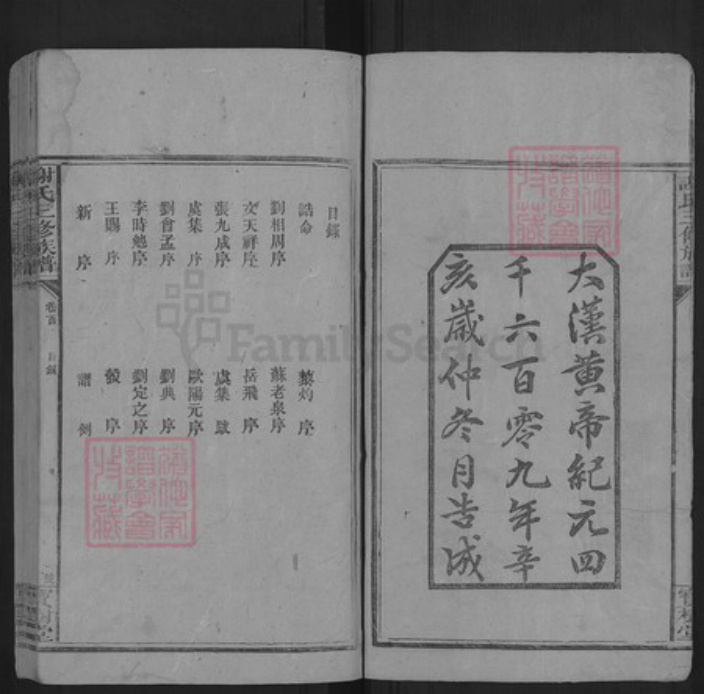 謝氏三修族譜
大漢黃帝紀元四
千六百零九年辛
亥歲仲冬月告成
寶樹堂
目錄
誥命
黎灼序
劉相周序
蘇老泉序
文天祥序
岳飛序
張九成序
虞集跋
虞集序
歐陽元序
劉會孟序
劉典序
李時勉序
劉定之序
王賜序
新序
譜例
謝氏三修族譜
卷首
目錄
寶樹堂
FamilySearch